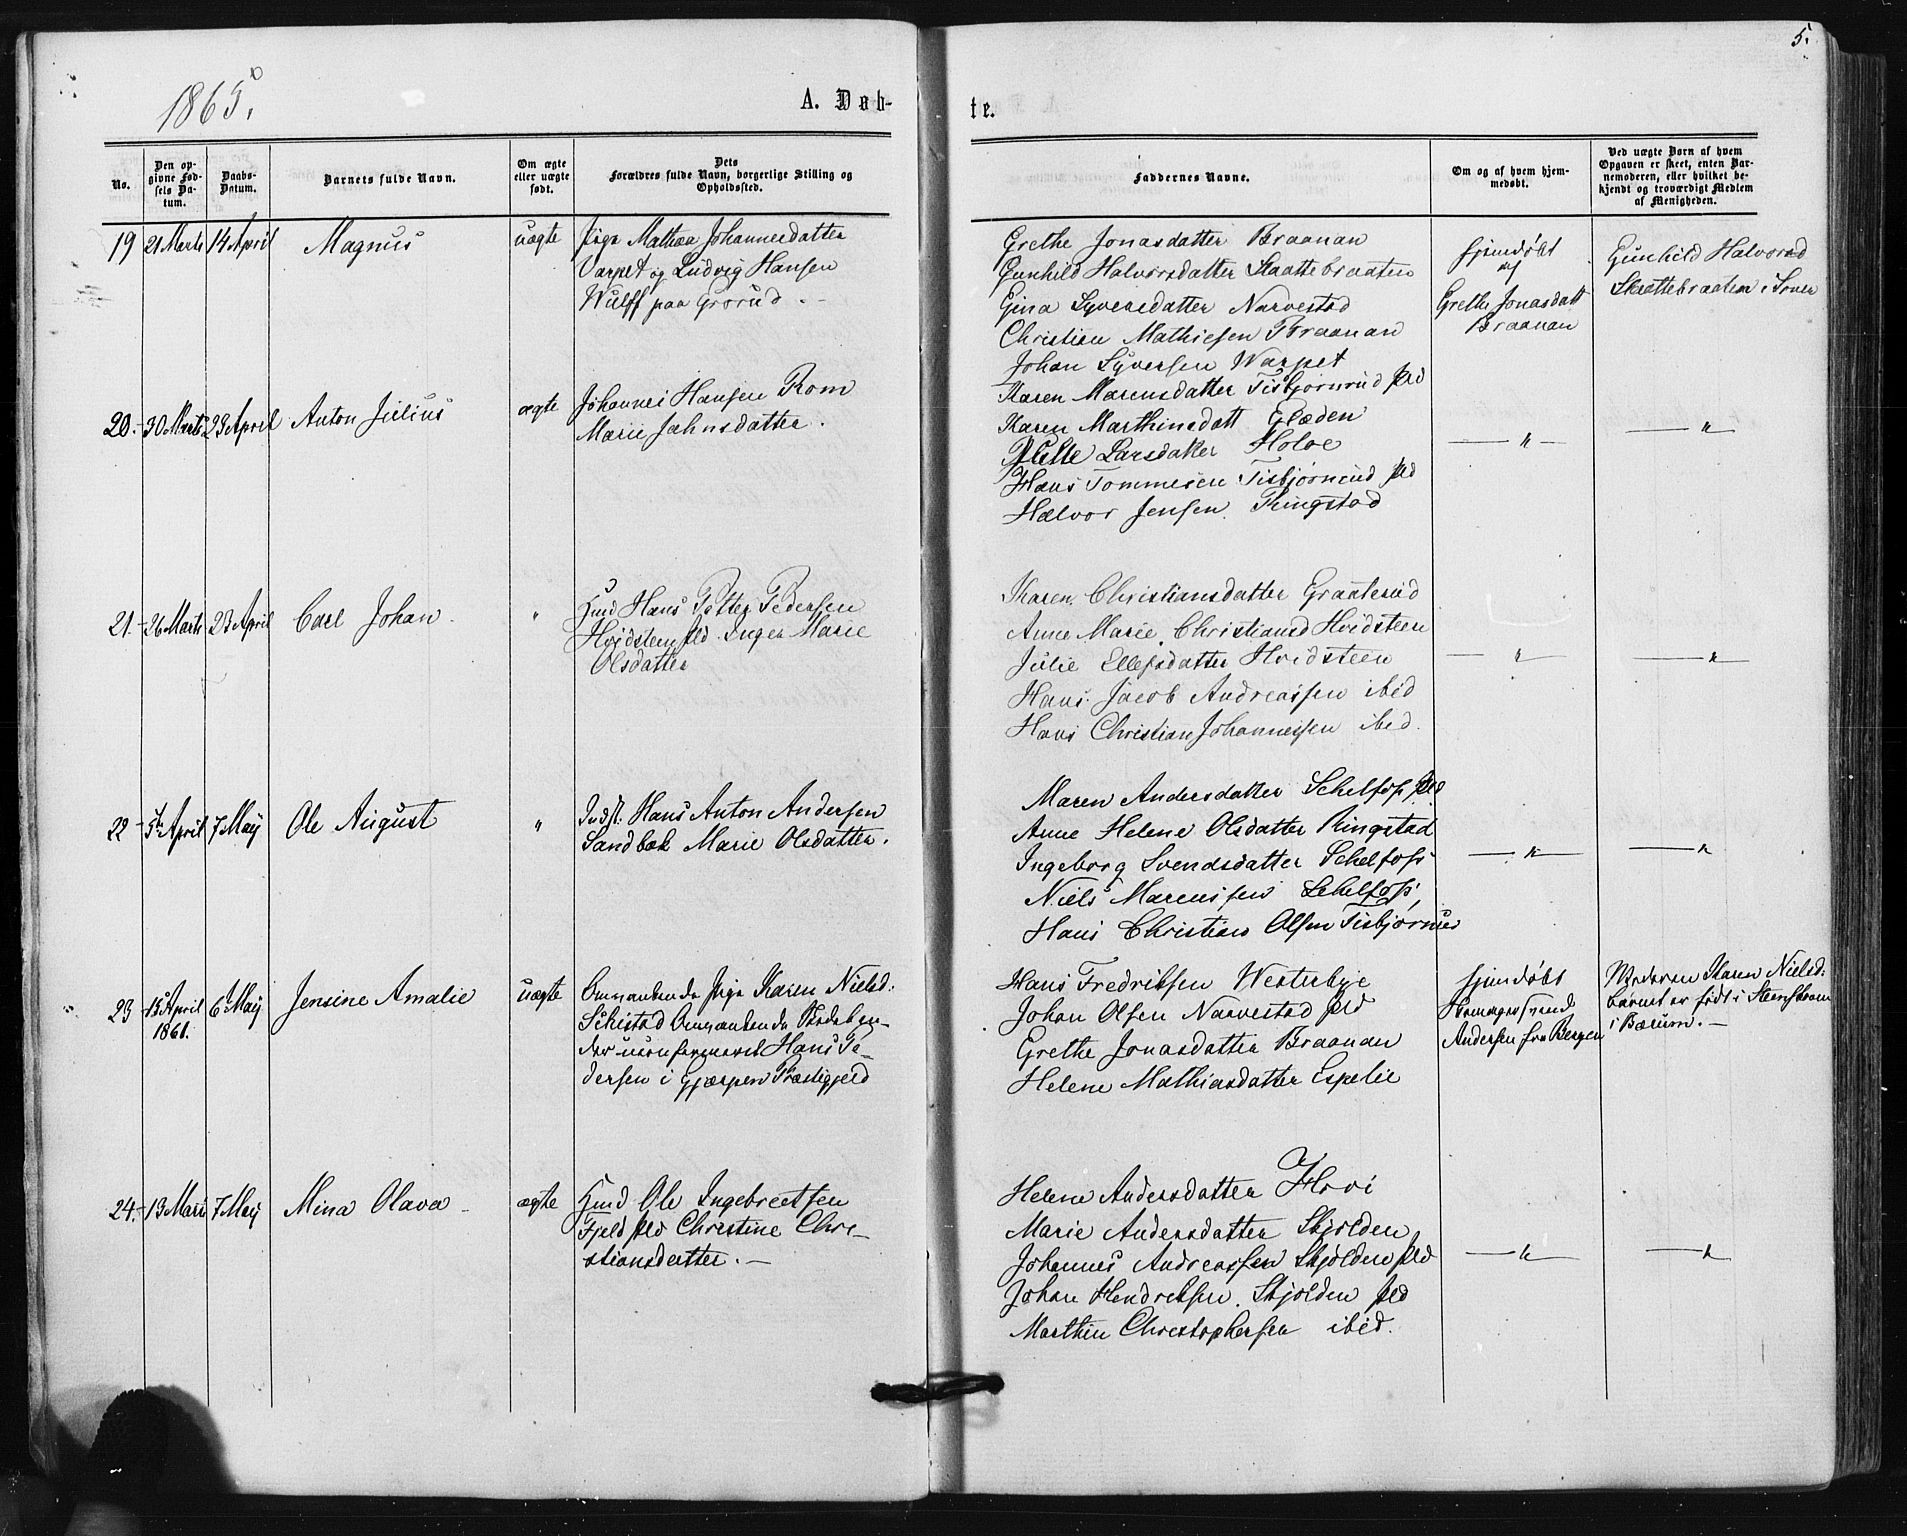 5.
1865.
A. Døb-
te.
No.
Den op-
givne Fød-
sels Da-
tum.
Daabs-
Datum.
Barnets fulde Navn.
Om ægte
eller uægte
født.
Dets
Forældres fulde Navn, borgerlige Stilling og
Opholdssted.
Faddernes Navne.
Om og af hvem hjem-
medøbt.
Ved uægte Børn af hvem
Opgaven er skeet, enten Bar-
nemoderen, eller hvilket be-
kjendt og troværdigt Medlem
af Menigheden.
19 21 Marts 14 April Magnus uægte Pige Mathea Johannesdatter
Varpet og Ludvig Hansen
Wulff paa Grorud.
Grethe Jonasdatter Braanan
Gunhild Halvorsdatter Skattebraaten
Gina Syversdatter Narvestad
Christian Mathiesen Braanan
Johan Syversen Warpet
hjemdøbt
af
Grethe Jonasdatt
Braanan
Gunhild Halvorsd
Skattebraaten i
20. 30 Marts 23 April Anton Julius ægte Johannes Hansen Rom
Marie Jahnsdatter.
Karen Marensdatter Tisbjørnrud pld
Karen Marthinsdatt
Larsdatter Holve
Hans Tommesen Tisbjørnrud pld
Halvor Jensen Ringstad
— " —
— "
21. 26 Marts 23 April Carl Johan. " Hmd Hans Petter Pedersen
Hvidsteen pld. Inger Marie
Olsdatter
Karen Christiansdatter Graaterud
Anne Marie Christiansd Hvidsteen
Julie Ellefsdatter Hvidsteen
Hans Jacob Andreassen ibid
Hans Christian Johannessen ibid.
— " —
— " —
22 5te April 7 Maij Ole August " Indst. Hans Anton Andersen
Sandbæk Marie Olsdatter.
Maren Andersdatter Schelfoss pld
Anne Helene Olsdatter Ringstad
Ingeborg Svendsdatter Schelfoss
Niels Marensen Schelfoss
Hans Christian Olsen Tisbjørnrud
— " —
— "
23 15 April
1861. 6 Maij Jensine Amalie uægte Omvankende Pige Karen Nielsd:
Omvankende
Hans Pe-
dersen i Gjærpen Præstegjeld
Hans Fredriksen Westerbye
Johan Olsen Narvestad pld
Grethe Jonasdatter Braanan
Helene Mathiasdatter Espelie
hjemdøbt
Andersen fra Bergen
Moderen Karen Nielsd:
barnet er født i
i Bærum. —
24. 13 Mars 7 Maij Mina Olava ægte Hmd Ole Ingebreetsen
Fjeld pld Christine Chri-
stiansdatter. —
Helene Andersdatter Hovi
Marie Andersdatter Skjolden
Johannes Andreassen Skjolden pld
Johan Hendriksen Skjolden pld
Marthin Christophersen ibid.
— " —
— "